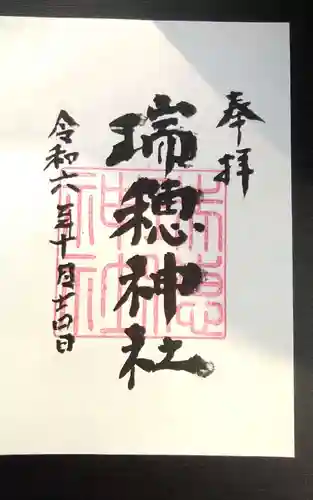 奉拝
瑞穂神社
令和六年十月廿四日